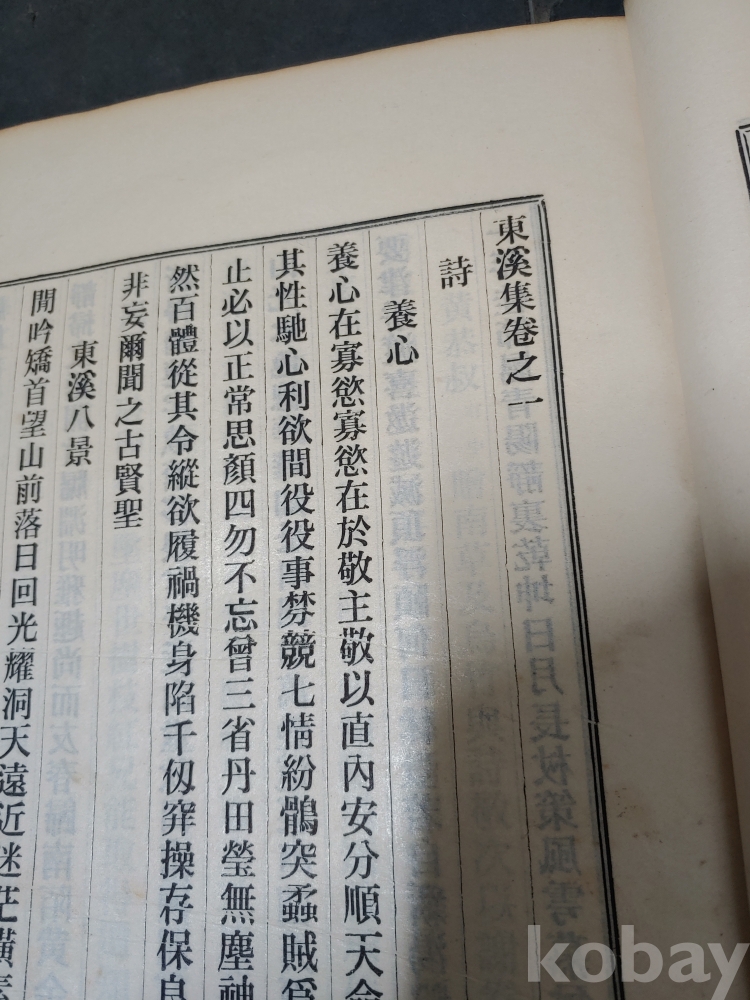 東溪集卷之一
詩
養心
養心在寡慾寡慾在於敬主敬以直內安分順天
其性馳心利欲間役役事棼競七情紛鶻突蟊賊爲
止必以正常思顏四勿不忘曾三省丹田瑩無塵神
然百體從其令縱欲履禍機身陷千仭穽操存保良
非妄爾聞之古賢聖
東溪八景
閒吟矯首望山前落日回光耀洞天遠近迷茫橫素
kobay